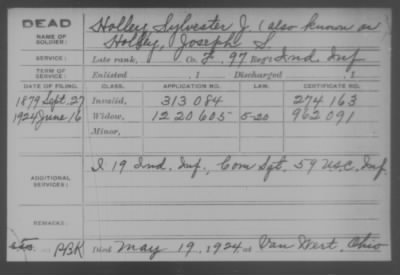 DEAD Holley, Sylvester J. (also known as
NAME OF SOLDIER: Holley, Joseph S.
SERVICE: Late rank, Co. F, 97 Reg't Ind. Inf.
TERM OF SERVICE: Enlisted , 1 Discharged , 1
DATE OF FILING. CLASS. APPLICATION NO. LAW. CERTIFICATE NO.
1879 Sept. 27 Invalid, 313 084 274 163
1924 June 16 Widow, 1220 605 5-20 962 091
Minor,
ADDITIONAL SERVICES: I 19 Ind. Inf., Com Sgt. 59 U.S.C. Inf.
REMARKS:
PBK Died May 19, 1924, at Van Wert, Ohio